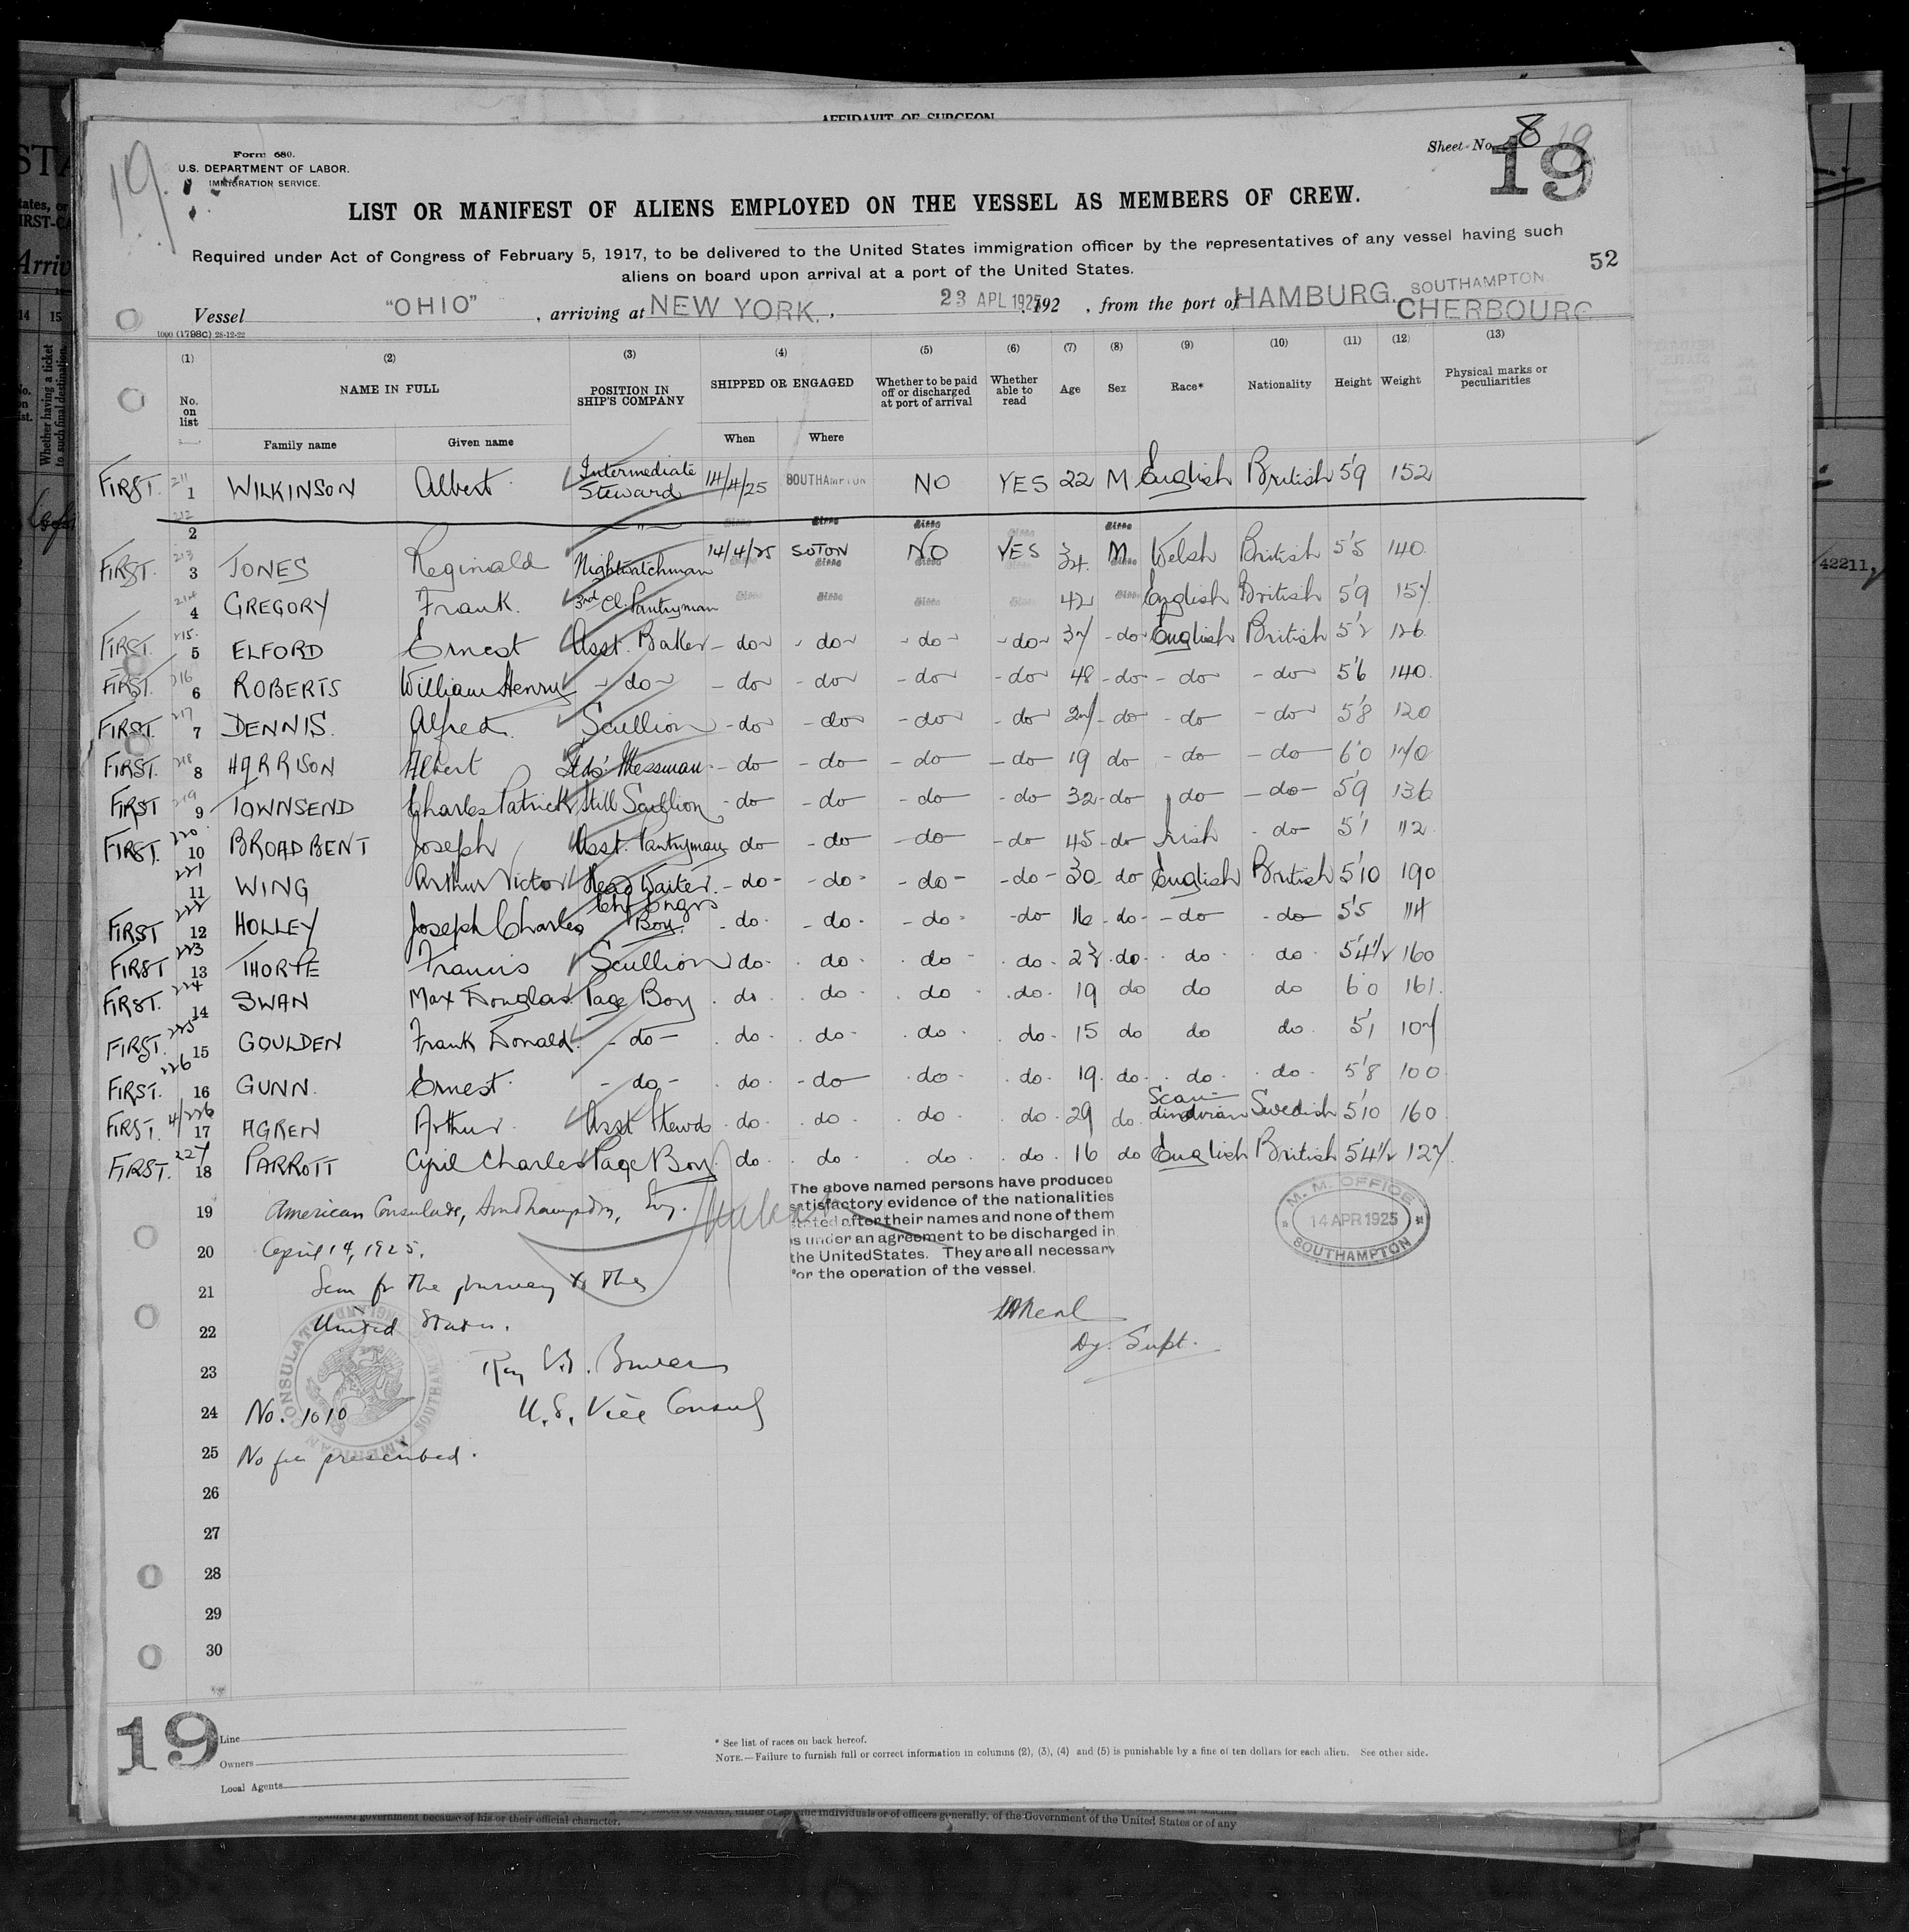 AFFIDAVIT OF SURGEON
19.
Form 680.
U.S. DEPARTMENT OF LABOR.
IMMIGRATION SERVICE.
Sheet No. 8 19
19
LIST OR MANIFEST OF ALIENS EMPLOYED ON THE VESSEL AS MEMBERS OF CREW.
Required under Act of Congress of February 5, 1917, to be delivered to the United States immigration officer by the representatives of any vessel having such
aliens on board upon arrival at a port of the United States.
52
Vessel "OHIO", arriving at NEW YORK., 23 APL 1925 192 , from the port of HAMBURG. SOUTHAMPTON. CHERBOURG
1000 (1798C) 28-12-22
(1) (2) (3) (4) (5) (6) (7) (8) (9) (10) (11) (12) (13)
No. on list NAME IN FULL POSITION IN SHIP'S COMPANY SHIPPED OR ENGAGED Whether to be paid off or discharged at port of arrival Whether able to read Age Sex Race* Nationality Height Weight Physical marks or peculiarities
Family name Given name When Where
FIRST. 211 1 WILKINSON Albert Intermediate Steward 14/4/25 SOUTHAMPTON NO YES 22 M English British 5'9 152
212 2 " Ditto Ditto Ditto Ditto Ditto
FIRST. 213 3 JONES Reginald Nightwatchman 14/4/25 SOTON NO YES 34. M Welsh British 5'5 140
214 4 GREGORY Frank. 3rd Cl. Pantryman Ditto Ditto Ditto Ditto 42 Ditto English British 5'9 157
FIRST. 215. 5 ELFORD Ernest Asst. Baker - do - do - do - do 37 - do English British 5'2 126
FIRST. 216 6 ROBERTS William Henry - do - - do - do - do - do 48 - do - do - do 5'6 140.
FIRST. 217 7 DENNIS. Alfred. Scullion - do - do - do - do 27 - do - do - do 5'8 120
FIRST. 218 8 HARRISON Albert Messman - do - do - do - do 19 do - do - do 6'0 170
FIRST 219 9 TOWNSEND Charles Patrick Still Scullion - do - do - do - do 32 - do do - do - 5'9 136
FIRST. 220 10 BROADBENT Joseph Asst. Pantryman do - do - do - do 45 - do Irish - do 5'1 112
221 11 WING Arthur Victor Head Waiter. - do - - do - - do - - do - 30 do English British 5'10 190
FIRST 222 12 HOLLEY Joseph Charles Chf Engrs Boy. - do. - do. - do - - do 16 - do - - do - - do 5'5 114
FIRST 223 13 THORPE Francis Scullion do - do - do - do - 23 do do do 5'4½ 160
FIRST. 224 14 SWAN Max Douglas Page Boy do do do do 19 do do do 6'0 161.
FIRST. 225 15 GOULDEN Frank Donald. - do - do - do - do do - 15 do do do 5'1 107
FIRST. 226 16 GUNN. Ernest. - do - do - do do do 19 do do do 5'8 100
FIRST. 4/226 17 AGREN Arthur Asst Stewds do do do do 29 do Scandinavian Swedish 5'10 160
FIRST. 227 18 PARROTT Cyril Charles Page Boy do do do do 16 do English British 5'4½ 127
19 American Consulate, Southampton, Eng.
20 April 14, 1925.
21 Seen for the journey to the
22 United States.
23 Roy Bower
24 No. 1010 U.S. Vice Consul
25 No fee prescribed.
26
27
28
29
30
The above named persons have produced
satisfactory evidence of the nationalities
stated after their names and none of them
is under an agreement to be discharged in
the United States. They are all necessary
for the operation of the vessel.
Dy. Supt.
M. M. OFFICE
14 APR 1925
SOUTHAMPTON
AMERICAN CONSULATE
SOUTHAMPTON ENGLAND
42211,
19
Line
Owners
Local Agents
* See list of races on back hereof.
NOTE.—Failure to furnish full or correct information in columns (2), (3), (4) and (5) is punishable by a fine of ten dollars for each alien. See other side.
government because of his or their official character.
individuals or of officers generally, of the Government of the United States or of any